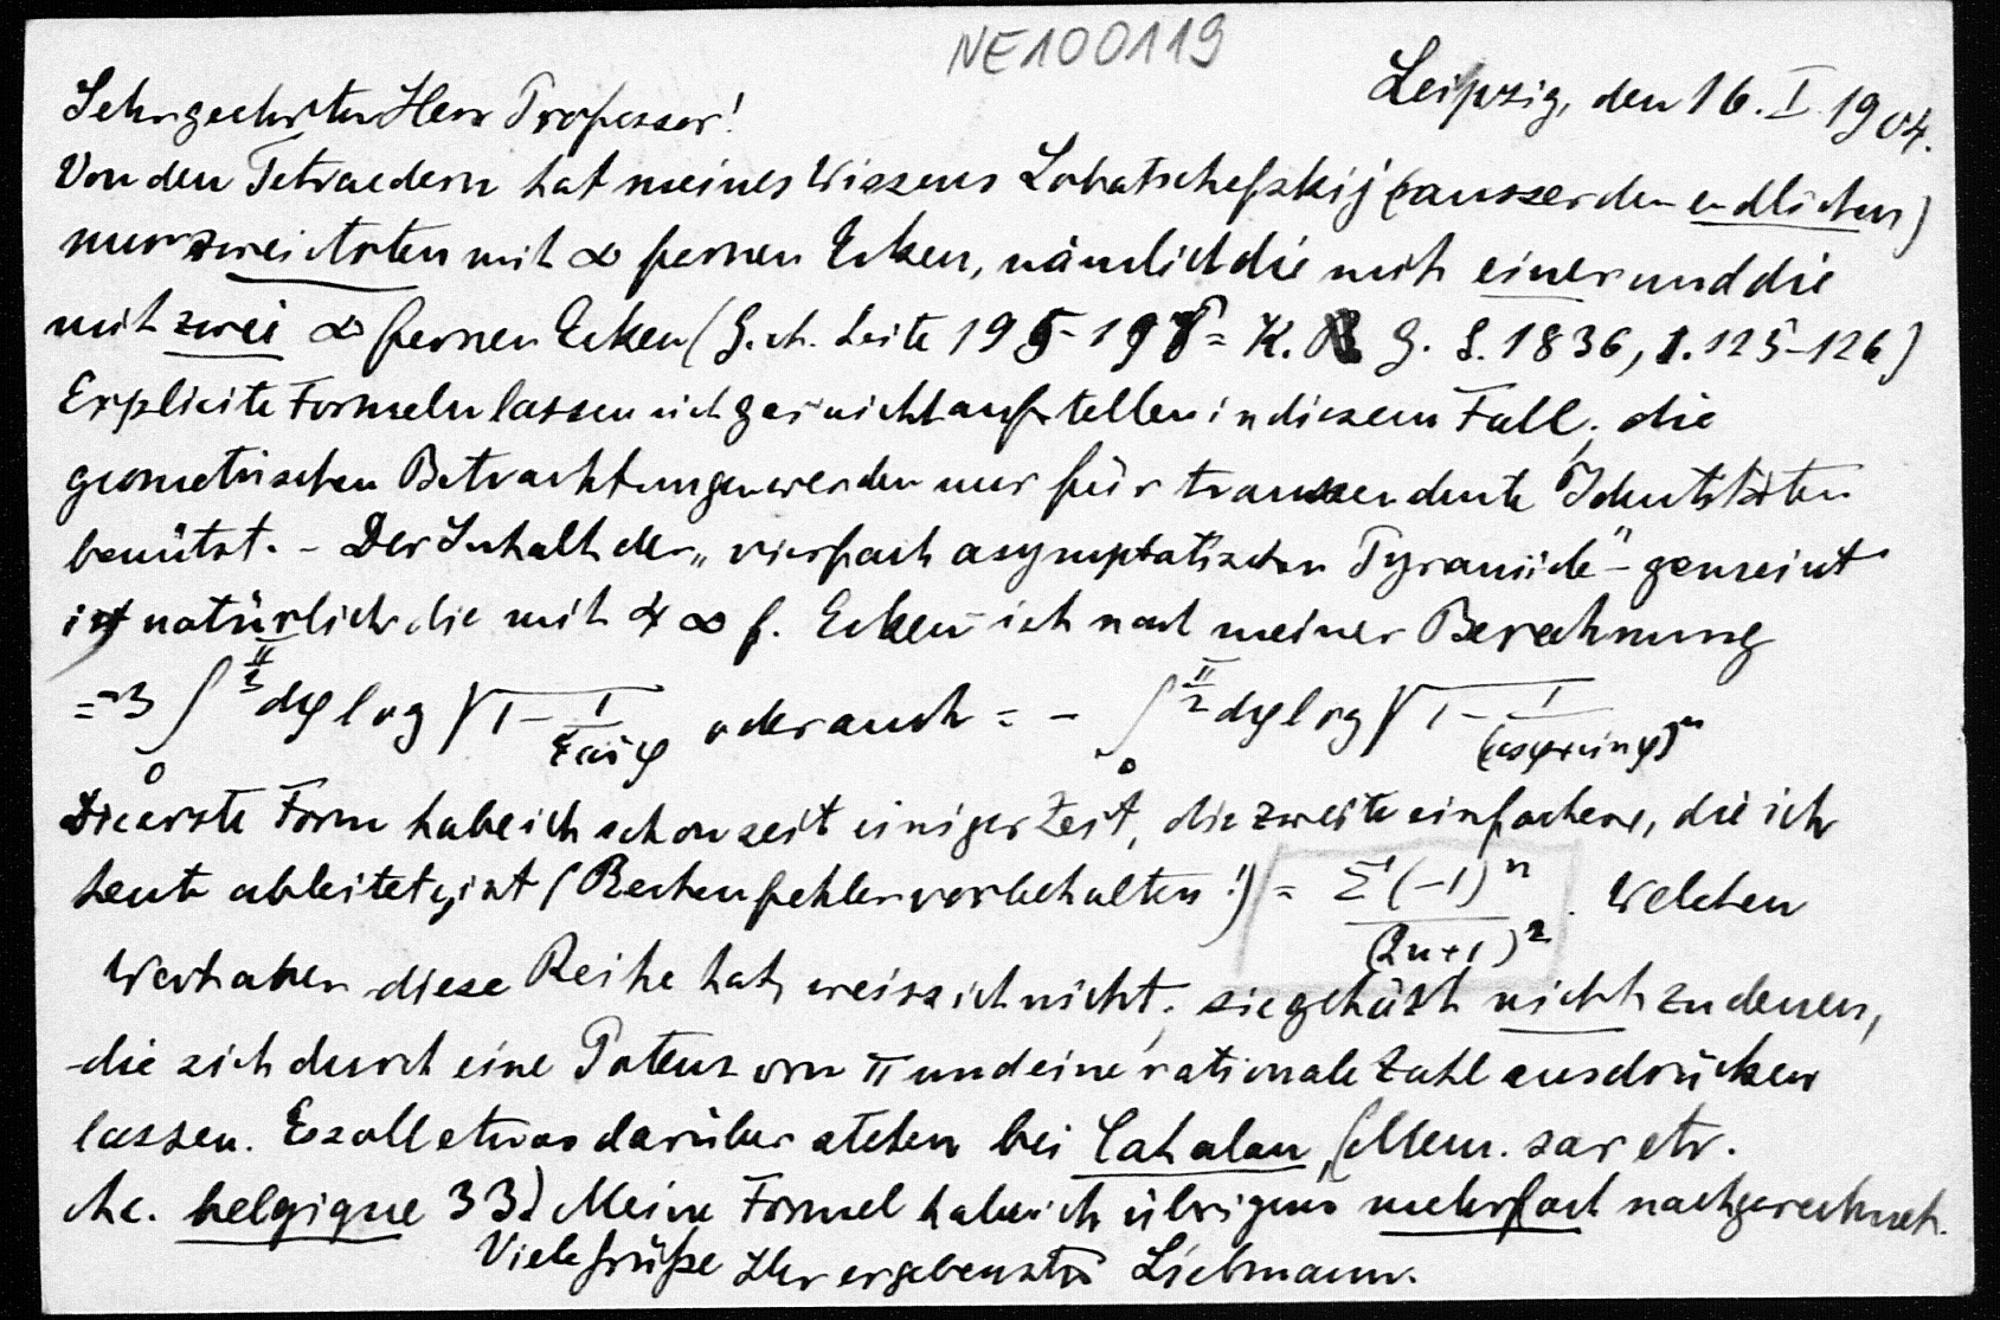 NE100119
Leipzig, den 16. I. 1904.
Sehr geehrter Herr Professor!
Von den Tetraedern hat meines Wissens Lobatschefskij (ausser den endlichen)
nur zwei Arten mit ∞ fernen Ecken, nämlich die mit einer und die
mit zwei ∞ fernen Ecken (G. A. Seite 195-198 = K. G. S. 1836, S. 125-126)
Explicite Formeln lassen sich gar nicht aufstellen in diesem Fall; die
geometrischen Betrachtungen werden nur für transzendente Identitäten
benützt. - Der Inhalt der „vierfach asymptotischen Pyramide" - gemeint
ist natürlich die mit 4 ∞ f. Ecken - ist nach meiner Berechnung
= -3 ∫₀^{π/3} dφ log √(1 - 1/(4 cos²φ)) oder auch = - ∫₀^{π/2} dφ log √(1 - 1/(cos φ + sin φ)²)
Die erste Form habe ich schon seit einiger Zeit, die zweite einfachere, die ich
heute ableitete, ist (Rechenfehler vorbehalten!) = Σ (-1)ⁿ/(2n+1)². Welchen
Wert aber diese Reihe hat, weiss ich nicht; sie gehört nicht zu denen,
die sich durch eine Potenz von π und eine rationale Zahl ausdrücken
lassen. Es soll etwas darüber stehen bei Catalan, (Mem. sav etr.
Ac. belgique 33) Meine Formel habe ich übrigens mehrfach nachgerechnet.
Viele Grüße Ihr ergebenster Liebmann.